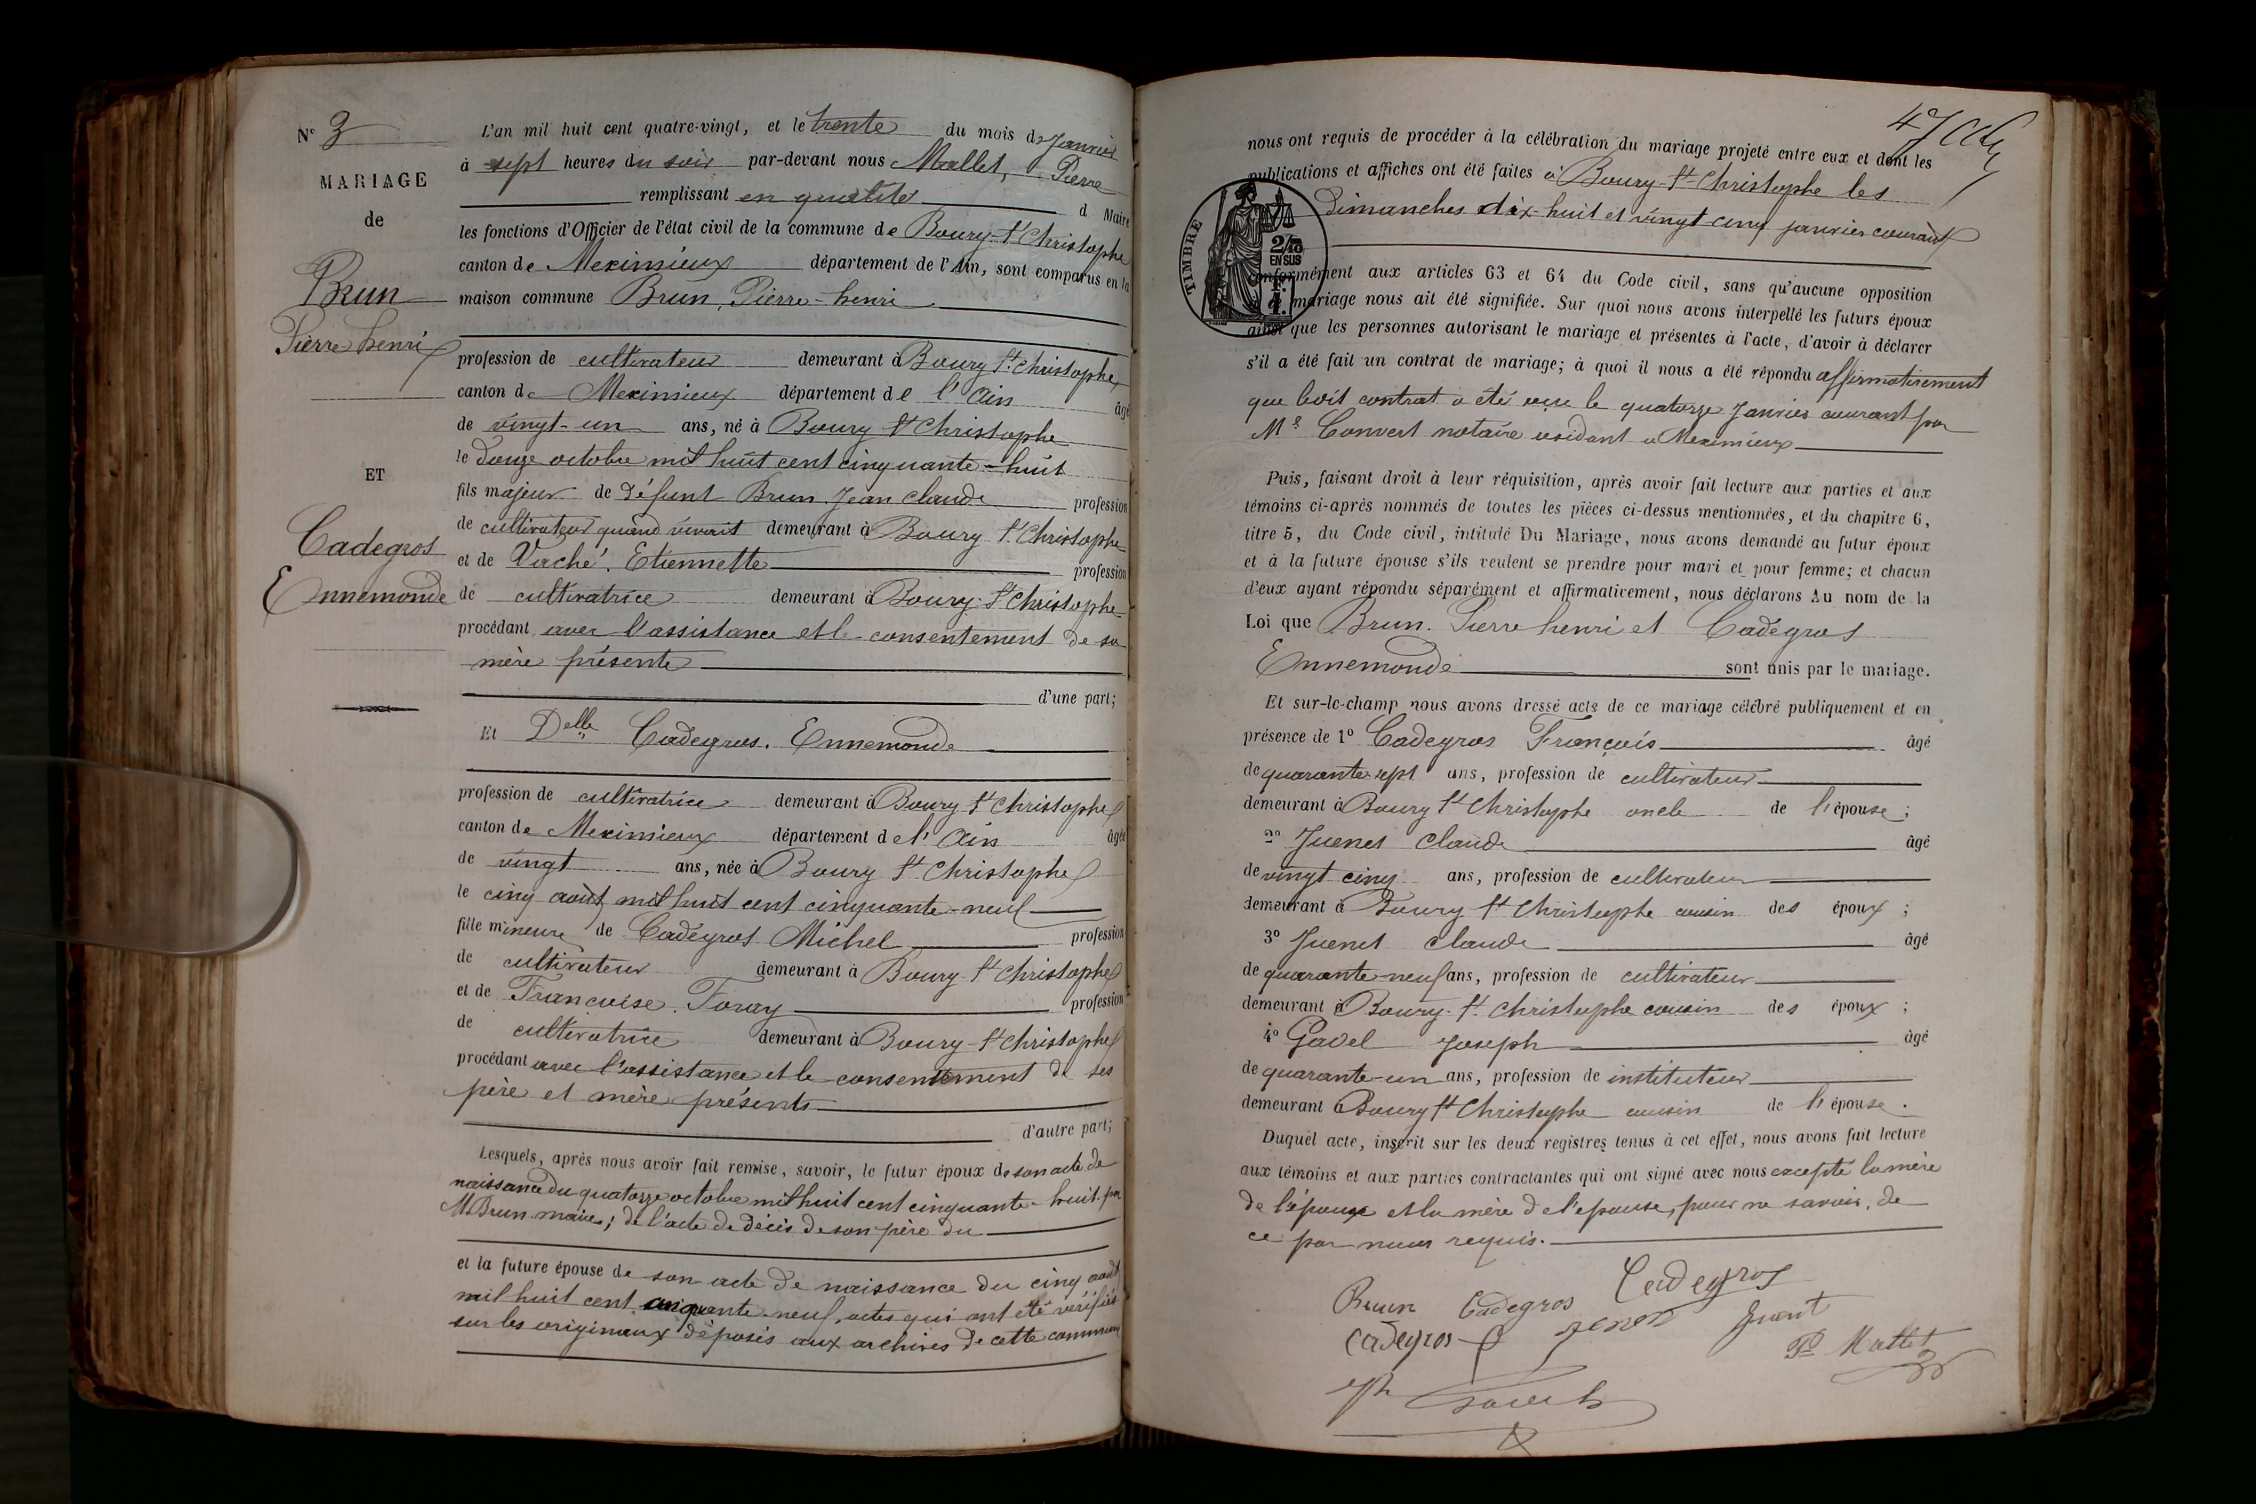 N° 3
MARIAGE
de
Brun
Pierre henri
ET
Cadegros
Ennemonde
L'an mil huit cent quatre-vingt, et le trente du mois de Janvier
à sept heures du soir par-devant nous Mallet, Pierre
remplissant en qualité d Maire
les fonctions d'Officier de l'état civil de la commune de Boury-St Christophe
canton de Meximieux département de l'Ain, sont comparus en la
maison commune Brun, Pierre-henri
profession de cultivateur demeurant à Boury St Christophe
canton de Meximieux département de l'Ain âgé
de vingt-un ans, né à Boury St Christophe
le douze octobre mil huit cent cinquante-huit
fils majeur de défunt Brun Jean claude profession
de cultivateur quand vivait demeurant à Boury St Christophe
et de Vaché. Etiennette profession
de cultivatrice demeurant à Boury-St Christophe
procédant avec l'assistance et le consentement de sa
mère présente
d'une part;
Et Delle Cadegros. Ennemonde
profession de cultivatrice demeurant à Boury-St Christophe
canton de Meximieux département de l'Ain âgée
de vingt ans, née à Boury St Christophe
le cinq août mil huit cent cinquante-neuf
fille mineure de Cadegros Michel profession
de cultivateur demeurant à Boury-St Christophe
et de Francoise. Foray profession
de cultivatrice demeurant à Boury-St Christophe
procédant avec l'assistance et le consentement de ses
père et mère présents
d'autre part;
Lesquels, après nous avoir fait remise, savoir, le futur époux de son acte de
naissance du quatorze octobre mil huit cent cinquante-huit par
M. Brun maire; de l'acte de décès de son père du
et la future épouse de son acte de naissance du cinq août
mil huit cent cinquante-neuf, actes qui ont été vérifiés
sur les originaux déposés aux archives de cette commune
47
nous ont requis de procéder à la célébration du mariage projeté entre eux et dont les
publications et affiches ont été faites à Boury-St Christophe les
dimanches dix-huit et vingt cinq janvier courant
TIMBRE
2/10
EN SUS
conformément aux articles 63 et 64 du Code civil, sans qu'aucune opposition
mariage nous ait été signifiée. Sur quoi nous avons interpellé les futurs époux
ainsi que les personnes autorisant le mariage et présentes à l'acte, d'avoir à déclarer
s'il a été fait un contrat de mariage; à quoi il nous a été répondu affirmativement
que ledit contrat a été reçu le quatorze Janvier courant par
Me Convert notaire residant a Meximieux
Puis, faisant droit à leur réquisition, après avoir fait lecture aux parties et aux
témoins ci-après nommés de toutes les pièces ci-dessus mentionnées, et du chapitre 6,
titre 5, du Code civil, intitulé Du Mariage, nous avons demandé au futur époux
et à la future épouse s'ils veulent se prendre pour mari et pour femme; et chacun
d'eux ayant répondu séparément et affirmativement, nous déclarons Au nom de la
Loi que Brun. Pierre henri et Cadégros
Ennemonde sont unis par le mariage.
Et sur-le-champ nous avons dressé acte de ce mariage célébré publiquement et en
présence de 1° Cadegros François âgé
de quarante sept ans, profession de cultivateur
demeurant à Boury St Christophe oncle de l'épouse;
2° Juenet Claude âgé
de vingt cinq ans, profession de cultivateur
demeurant à Boury St Christophe cousin des époux;
3° Juenet claude âgé
de quarante-neuf ans, profession de cultivateur
demeurant à Boury-St Christophe cousin des époux;
4° Gavel Joseph âgé
de quarante-un ans, profession de instituteur
demeurant à Boury St Christophe cousin de l'épouse.
Duquel acte, inscrit sur les deux registres tenus à cet effet, nous avons fait lecture
aux témoins et aux parties contractantes qui ont signé avec nous excepté la mère
de l'époux et la mère de l'epouse, pour ne savoir, de
ce par nous requis.
Brun Cadegros Cadegros
Cadegros f Juent
P. Mallet